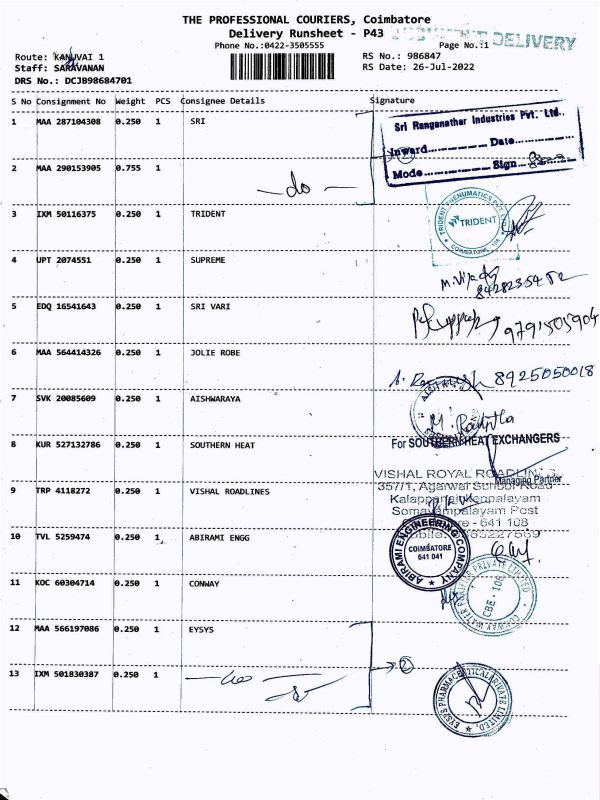 THE PROFESSIONAL COURIERS, Coimbatore
Delivery Runsheet - P43
DELIVERY
Phone No.:0422-3505555
Page No.:1
Route: KANUVAI 1
RS No.: 986847
Staff: SARAVANAN
RS Date: 26-Jul-2022
DRS No.: DCJB98684701
S No Consignment No Weight PCS Consignee Details Signature
1 MAA 287104308 0.250 1 SRI
Sri Ranganathar Industries Pvt. Ltd.,
Inward Date
Mode Sign
2 MAA 290153905 0.755 1 -do-
3 IXM 50116375 0.250 1 TRIDENT
TRIDENT PNEUMATICS PVT. LTD.
TRIDENT
COIMBATORE
4 UPT 2074551 0.250 1 SUPREME
5 EDQ 16541643 0.250 1 SRI VARI
9791505904
6 MAA 564414326 0.250 1 JOLIE ROBE
8925050018
7 SVK 20085609 0.250 1 AISHWARAYA
8 KUR 527132786 0.250 1 SOUTHERN HEAT
For SOUTHERN HEAT EXCHANGERS
Managing Partner
9 TRP 4118272 0.250 1 VISHAL ROADLINES
VISHAL ROYAL ROADLINES
357/1, Agarwal School Road
Post
- 641 108
10 TVL 5259474 0.250 1 ABIRAMI ENGG
ABIRAMI ENGINEERING COMPANY
COIMBATORE
641 041
11 KOC 60304714 0.250 1 CONWAY
PRIVATE LIMITED
CBE - 108
CONWAY WATER
12 MAA 566197086 0.250 1 EYSYS
13 IXM 501830387 0.250 1
2
EYSYS PHARMACEUTICAL PRIVATE LIMITED